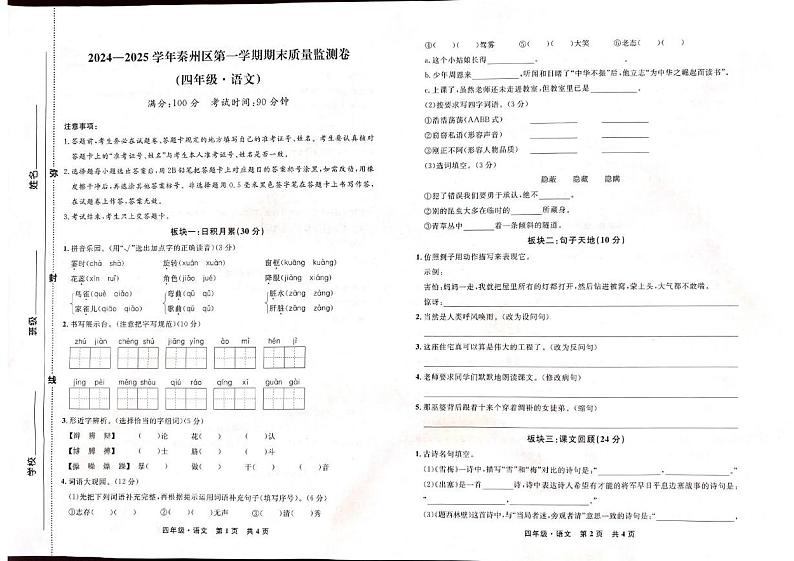 学校
班级
姓名
线
封
弥
2024—2025学年秦州区第一学期期末质量监测卷
(四年级·语文)
满分:100分 考试时间:90分钟
注意事项:
1.答题前,考生务必在试题卷、答题卡规定的地方填写自己的准考证号、姓名。考生要认真核对
答题卡上的“准考证号、姓名”与考生本人准考证号、姓名是否一致。
2.选择题每小题选出答案后,用2B铅笔把答题卡上对应题目的答案标号涂黑,如需改动,用橡
皮擦干净后,再选涂其他答案标号。非选择题用0.5毫米黑色签字笔在答题卡上书写作答,
在试题卷上作答,答案无效。
3.考试结束,考生只上交答题卡。
板块一:日积月累(30分)
1.拼音乐园。(用“√”选出加点字的正确读音)(3分)
霎时(shà chà) 旋转(xuán xuàn) 窗框(kuàng kuāng)
花蕊(xīn ruǐ) 角色(jiǎo jué) 降服(jiàng xiáng)
鸟雀(què qiǎo) 弯曲(qū qǔ) 脏水(zāng zàng)
家雀儿(què qiǎo) 歌曲(qū qǔ) 肝脏(zāng zàng)
2.书写展示台。(注意把字写规范)(10分)
zhú jiàn chéng shú jiāng yìng ào mì hén jì
jīng pèi měng shòu qiú ráo qīng xī guàn gài
3.形近字辨析。(选择恰当的字组词)(5分)
【辩 辨 瓣】 ( )论 花( ) ( )认
【博 膊 搏】 ( )士 胳( ) ( )斗
【操 噪 燥 躁】 暴( ) 做( ) 干( ) ( )音
4.词语大观园。(12分)
(1)先把下列词语补充完整,再根据提示运用词语补充句子(填写序号)。(6分)
①志存( )( ) ②( )( )无声 ③( )清( )秀
四年级·语文 第1页 共4页
④( )( )驾雾 ⑤( )( )大笑 ⑥老态( )( )
a.这个小姑娘长得 。
b.少年周恩来 ,听闻和目睹了“中华不振”后,他立志“为中华之崛起而读书”。
c.上课了,虽然老师还未走进教室,但教室里已是 。
(2)按要求写四字词语。(3分)
①浩浩荡荡(AABB式)
②窃窃私语(形容声音)
③刚正不阿(形容人物品质)
(3)选词填空。(3分)
隐蔽 隐藏 隐瞒
①犯了错误我们要勇于承认,他不 。
②别的昆虫大多在临时的 所藏身。
③青草丛中 着一条倾斜的隧道。
板块二:句子天地(10分)
1.仿照例子用动作描写来表现它。
示例:
害怕:妈妈一走,我就把屋里所有的灯都打开,然后钻进被窝,蒙上头,大气都不敢喘。
惊讶:
2.当然是人类呼风唤雨。(改为设问句)
3.这座住宅真可以算是伟大的工程了。(改为反问句)
4.老师要求同学们默默地朗读课文。(修改病句)
5.那巫婆背后跟着十来个穿着绸褂的女徒弟。(缩句)
板块三:课文回顾(24分)
1.古诗名句填空。
(1)《雪梅》一诗中,描写“雪”和“梅”对比的诗句是:“ , 。
(2)《出塞》是一首 诗,诗中表达诗人希望有才能的将军早日平息边塞战事的诗句是:
“ , ”。
(3)《题西林壁》这首诗中,与“当局者迷,旁观者清”意思一致的诗句是:“ ,
四年级·语文 第2页 共4页